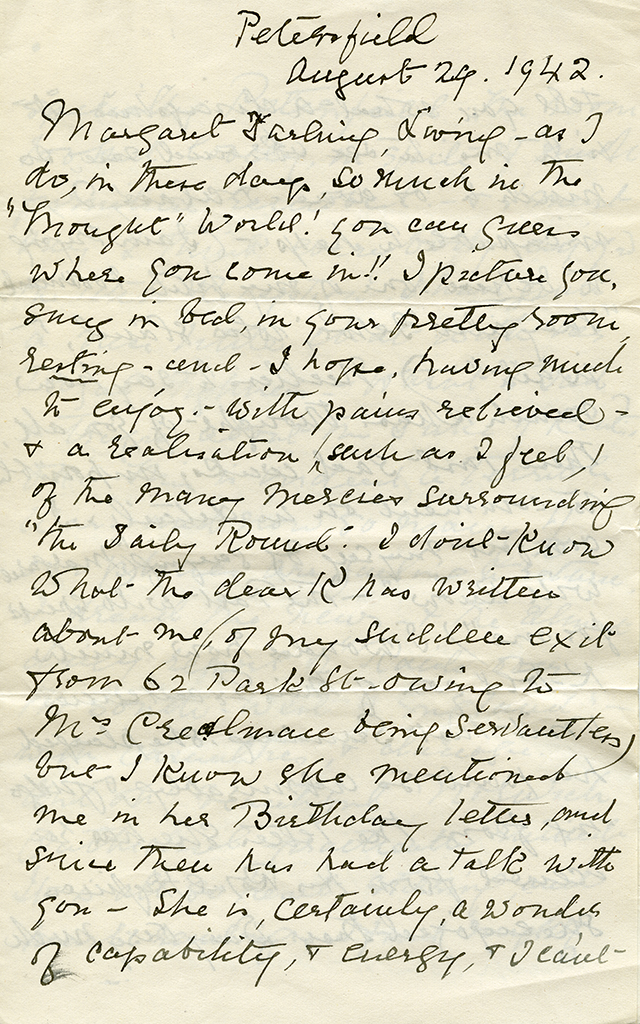 Petersfield
August 29. 1942.
Margaret Darling, Living - as I
do, in these days, so much in the
"Thought" World! you can guess
where you come in!! I picture you,
snug in bed, in your pretty room,
resting - and - I hope, having much
to enjoy - with pains relieved -
& a realisation (such as I feel)
of the many mercies surrounding
"the Daily Round". I don't know
what the dear K has written
about me (of my sudden exit
from 62 Park St - owing to
Mrs being servantless)
but I know she mentioned
me in her Birthday letter, and
since then has had a talk with
you - She is, certainly, a wonder
of capability, & energy, & I can't